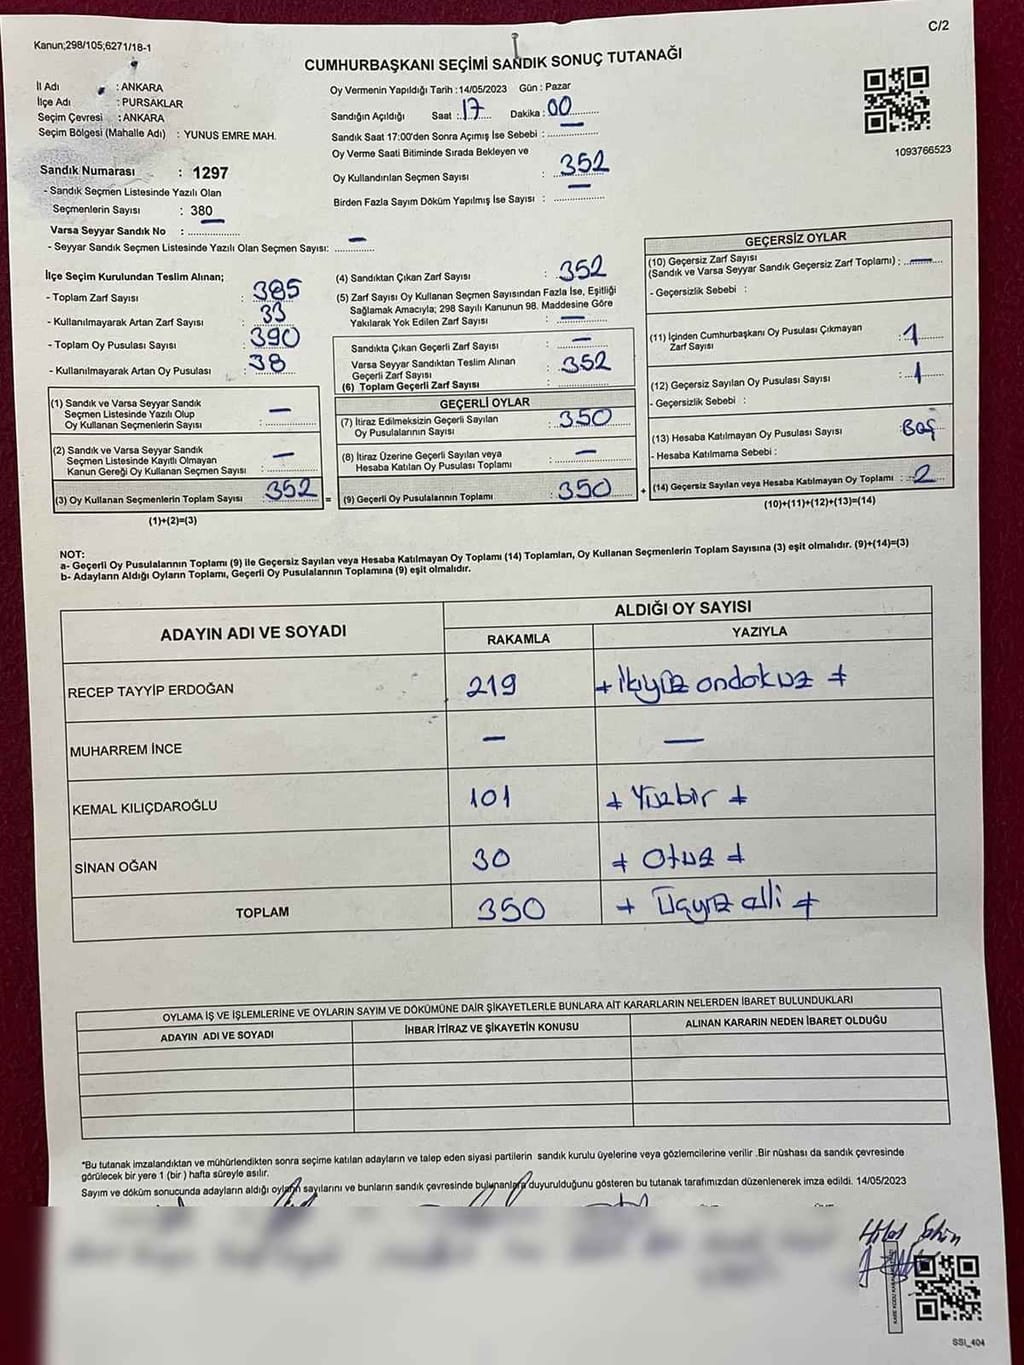 C/2
Kanun;298/105;6271/18-1
CUMHURBAŞKANI SEÇİMİ SANDIK SONUÇ TUTANAĞI
İl Adı : ANKARA
İlçe Adı : PURSAKLAR
Seçim Çevresi : ANKARA
Seçim Bölgesi (Mahalle Adı) : YUNUS EMRE MAH.
Sandık Numarası : 1297
- Sandık Seçmen Listesinde Yazılı Olan
Seçmenlerin Sayısı : 380
Varsa Seyyar Sandık No :
- Seyyar Sandık Seçmen Listesinde Yazılı Olan Seçmen Sayısı: —
Oy Vermenin Yapıldığı Tarih : 14/05/2023 Gün : Pazar
Sandığın Açıldığı Saat : 17 Dakika : 00
Sandık Saat 17:00'den Sonra Açımış İse Sebebi : —
Oy Verme Saati Bitiminde Sırada Bekleyen ve
Oy Kullandırılan Seçmen Sayısı : 352
Birden Fazla Sayım Döküm Yapılmış İse Sayısı : —
1093766523
İlçe Seçim Kurulundan Teslim Alınan;
- Toplam Zarf Sayısı : 385
- Kullanılmayarak Artan Zarf Sayısı : 33
- Toplam Oy Pusulası Sayısı : 390
- Kullanılmayarak Artan Oy Pusulası : 38
(1) Sandık ve Varsa Seyyar Sandık
Seçmen Listesinde Yazılı Olup
Oy Kullanan Seçmenlerin Sayısı : —
(2) Sandık ve Varsa Seyyar Sandık
Seçmen Listesinde Kayıtlı Olmayan
Kanun Gereği Oy Kullanan Seçmen Sayısı : —
(3) Oy Kullanan Seçmenlerin Toplam Sayısı : 352
(1)+(2)=(3)
(4) Sandıktan Çıkan Zarf Sayısı : 352
(5) Zarf Sayısı Oy Kullanan Seçmen Sayısından Fazla İse, Eşitliği
Sağlamak Amacıyla; 298 Sayılı Kanunun 98. Maddesine Göre
Yakılarak Yok Edilen Zarf Sayısı : —
Sandıkta Çıkan Geçerli Zarf Sayısı : —
Varsa Seyyar Sandıktan Teslim Alınan
Geçerli Zarf Sayısı : 352
(6) Toplam Geçerli Zarf Sayısı :
GEÇERLİ OYLAR
(7) İtiraz Edilmeksizin Geçerli Sayılan
Oy Pusulalarının Sayısı : 350
(8) İtiraz Üzerine Geçerli Sayılan veya
Hesaba Katılan Oy Pusulası Toplamı : —
= (9) Geçerli Oy Pusulalarının Toplamı : 350
GEÇERSİZ OYLAR
(10) Geçersiz Zarf Sayısı
(Sandık ve Varsa Seyyar Sandık Geçersiz Zarf Toplamı) : —
- Geçersizlik Sebebi :
(11) İçinden Cumhurbaşkanı Oy Pusulası Çıkmayan
Zarf Sayısı : 1
(12) Geçersiz Sayılan Oy Pusulası Sayısı : 1
- Geçersizlik Sebebi :
(13) Hesaba Katılmayan Oy Pusulası Sayısı : Boş
- Hesaba Katılmama Sebebi :
+ (14) Geçersiz Sayılan veya Hesaba Katılmayan Oy Toplamı : 2
(10)+(11)+(12)+(13)=(14)
NOT:
a- Geçerli Oy Pusulalarının Toplamı (9) ile Geçersiz Sayılan veya Hesaba Katılmayan Oy Toplamı (14) Toplamları, Oy Kullanan Seçmenlerin Toplam Sayısına (3) eşit olmalıdır. (9)+(14)=(3)
b- Adayların Aldığı Oyların Toplamı, Geçerli Oy Pusulalarının Toplamına (9) eşit olmalıdır.
ADAYIN ADI VE SOYADI ALDIĞI OY SAYISI
RAKAMLA YAZIYLA
RECEP TAYYİP ERDOĞAN 219 + ikiyüz ondokuz +
MUHARREM İNCE — —
KEMAL KILIÇDAROĞLU 101 + Yüzbir +
SİNAN OĞAN 30 + Otuz +
TOPLAM 350 + Üçyüz elli +
OYLAMA İŞ VE İŞLEMLERİNE VE OYLARIN SAYIM VE DÖKÜMÜNE DAİR ŞİKAYETLERLE BUNLARA AİT KARARLARIN NELERDEN İBARET BULUNDUKLARI
ADAYIN ADI VE SOYADI İHBAR İTİRAZ VE ŞİKAYETİN KONUSU ALINAN KARARIN NEDEN İBARET OLDUĞU
*Bu tutanak imzalandıktan ve mühürlendikten sonra seçime katılan adayların ve talep eden siyasi partilerin sandık kurulu üyelerine veya gözlemcilerine verilir .Bir nüshası da sandık çevresinde
görülecek bir yere 1 (bir ) hafta süreyle asılır.
Sayım ve döküm sonucunda adayların aldığı oyların sayılarını ve bunların sandık çevresinde bulunanlara duyurulduğunu gösteren bu tutanak tarafımızdan düzenlenerek imza edildi. 14/05/2023
SSI_404